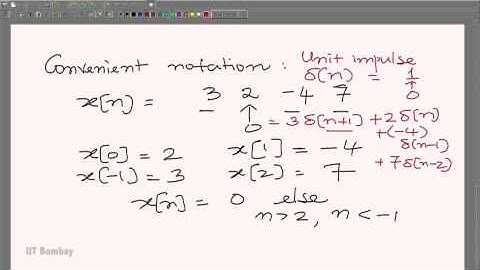 Convenient notation : Unit impulse
δ(n) = 1
↑
0
x[n] = 3 2 -4 7
↑
0
= 3 δ(n+1) + 2 δ(n)
+(-4) δ(n-1)
+ 7 δ(n-2)
x[0] = 2 x[1] = -4
x[-1] = 3 x[2] = 7
x[n] = 0 else
n>2, n<-1
IIT Bombay